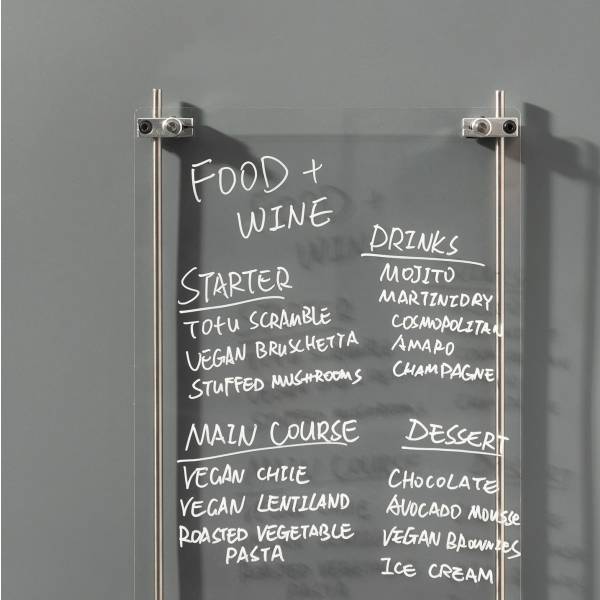 FOOD +
WINE
STARTER
TOFU SCRAMBLE
VEGAN BRUSCHETTA
STUFFED MUSHROOMS
DRINKS
MOJITO
MARTINIDRY
COSMOPOLITAN
AMARO
CHAMPAGNE
MAIN COURSE
VEGAN CHILE
VEGAN LENTILAND
ROASTED VEGETABLE
PASTA
DESSERT
CHOCOLATE
AVOCADO MOUSSE
VEGAN BROWNIES
ICE CREAM